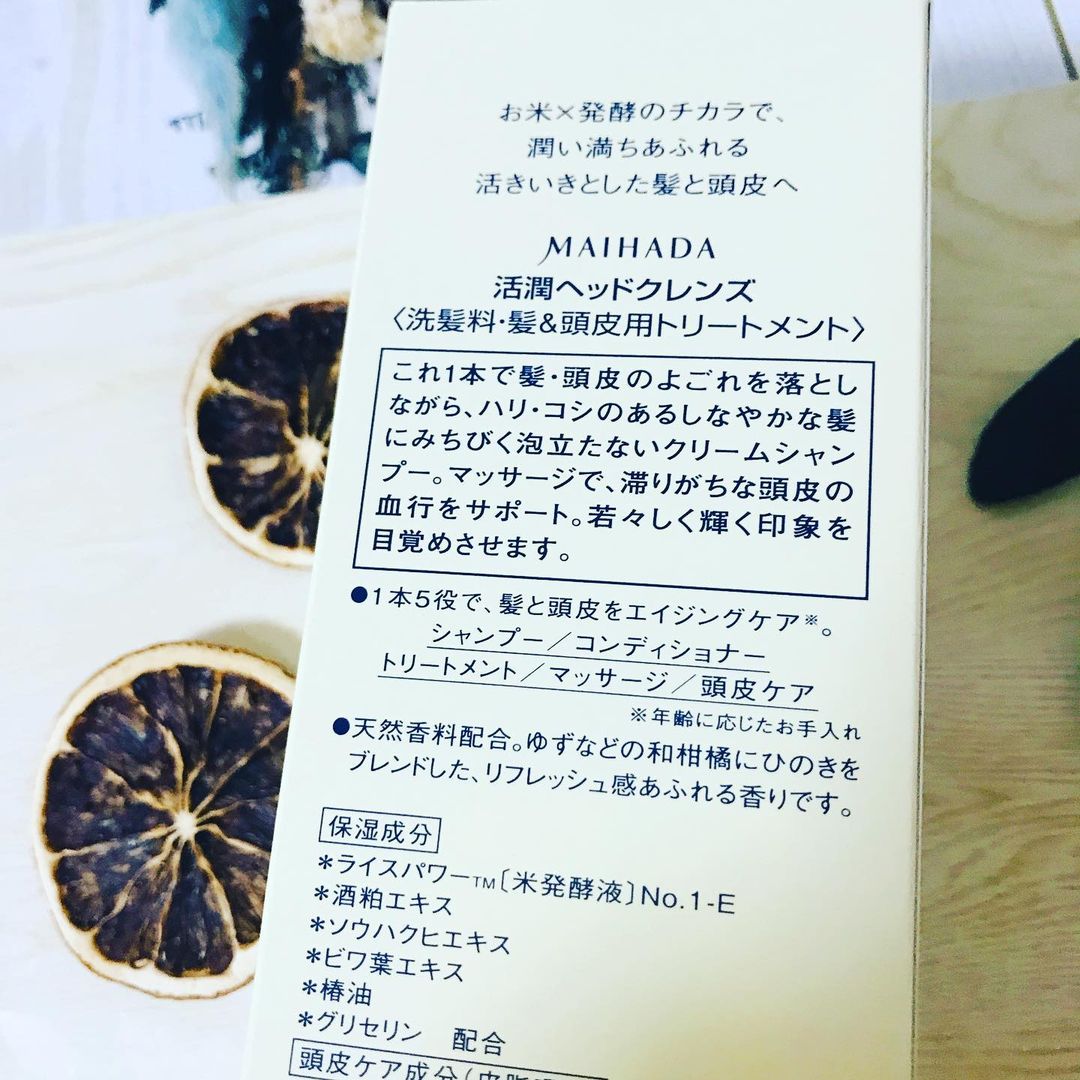 お米×発酵のチカラで、
潤い満ちあふれる
活きいきとした髪と頭皮へ
MAIHADA
活潤ヘッドクレンズ
〈洗髪料・髪&頭皮用トリートメント〉
これ1本で髪・頭皮のよごれを落とし
ながら、ハリ・コシのあるしなやかな髪
にみちびく泡立たないクリームシャン
プー。マッサージで、滞りがちな頭皮の
血行をサポート。若々しく輝く印象を
目覚めさせます。
●1本5役で、髪と頭皮をエイジングケア※。
シャンプー/コンディショナー
トリートメント/マッサージ/頭皮ケア
※年齢に応じたお手入れ
●天然香料配合。ゆずなどの和柑橘にひのきを
ブレンドした、リフレッシュ感あふれる香りです。
保湿成分
*ライスパワー™〔米発酵液〕No.1-E
*酒粕エキス
*ソウハクヒエキス
*ビワ葉エキス
*椿油
*グリセリン 配合
頭皮ケア成分(皮脂